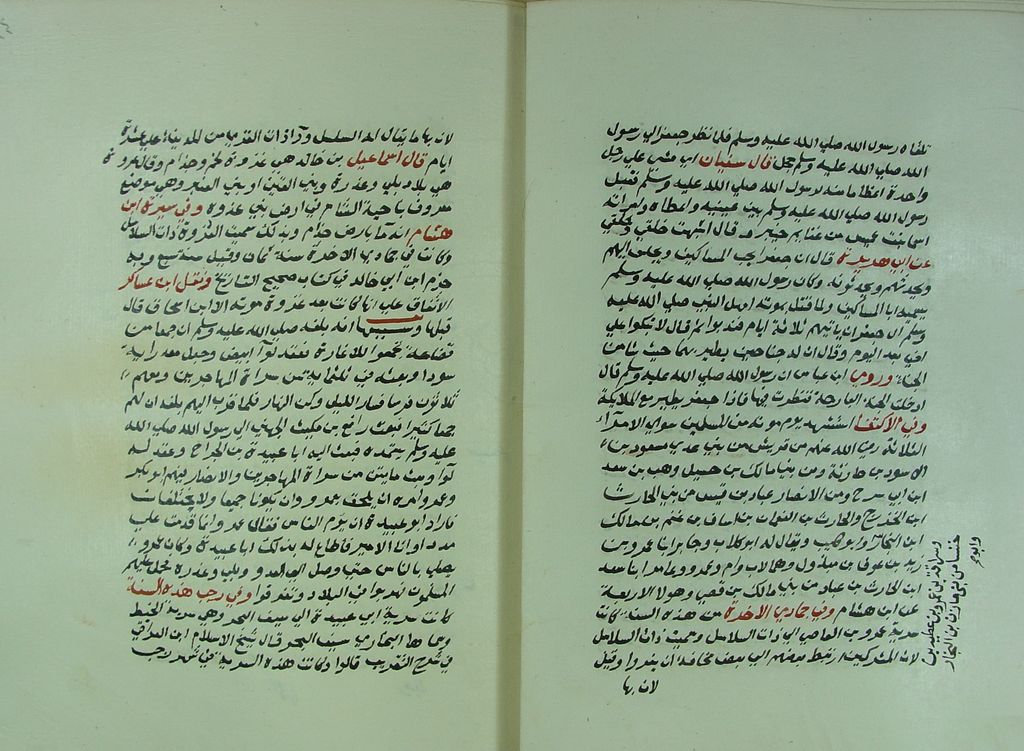 تلقاه رسول الله صلي الله عليه وسلم فلما نظر جعفر الي رسول
الله صلي الله عليه وسلم حجل قال سفيان اي مشي علي رجل
واحدة اعظاما منه لرسول الله صلي الله عليه وسلم فقبل
رسول الله صلي الله عليه وسلم بين عينيه واعطاه وامراته
اسما بنت عميس من غنايم خيبر وقال اشبهت خلقي وخلقي
عن ابي هريرة قال كان جعفر يحب المساكين ويجلس اليهم
ويحدثهم ويحدثونه وكان رسول الله صلي الله عليه وسلم
يسميه ابا المساكين ولما قتل بموته امهل النبي صلي الله عليه
وسلم ال جعفر ان ياتيهم ثلاثة ايام ثم قال لا تبكوا علي
اخي بعد اليوم وقال ان له جناحين يطير بهما حيث شا من
الجنة وروي ابن عباس ان رسول الله صلي الله عليه وسلم قال
ادخلت الجنة البارحة فنظرت فيها فاذا جعفر يطير مع الملايكة
وفي الاكتفا استشهد يوم موته من المسلمين سوي الامراء
الثلاثة رضي الله عنهم من قريش من بني عدي مسعود بن
الاسود بن حارثة ومن بني مالك بن حسيل وهب بن سعد
ابن ابي سرح ومن الانصار عباد بن قيس من بني الحارث
ابن الخزرج والحارث بن النعمان بن اساف بن غنم بن مالك
ابن النجار وابو كليب ويقال له ابو كلاب وجابر ابنا عمرو بن
زيد بن عوف بن مبذول وهما لاب وام وعمرو وعامر ابنا سعد
ابن الحارث بن عباد من بني مالك بن فصي وهولا الاربعة
عن ابن هشام وفي جمادي الاخرة من هذه السنة كانت
سرية عمرو بن العاص الي ذات السلاسل وسميت ذات السلاسل
لان المشركين ارتبط بعضهم الي بعض مخافة ان يفروا وقيل
لان بها
لان بها ما يقال له السلسل وراء ذات القري من المدينة علي عشرة
ايام قال اسماعيل بن خالد هي غزوة لخم وجذام وقال عروة
هي بلاد بلي وعذرة وبني القين او بني العنبر وهي موضع
معروف بناحية الشام في ارض بني عذرة وفي سيرة ابن
هشام انه ما بارض جذام وبذلك سميت الغزوة ذات السلاسل
وكانت في جمادي الاخرة سنة ثمان وقيل سنة سبع وبه
جزم ابن ابي خالد في كتاب صحيح التاريخ ونقل ابن عساكر
الاتفاق علي انها كانت بعد غزوة موته الا ابن اسحاق قال
قبلها وسببها انه بلغه صلي الله عليه وسلم ان جمعا من
قضاعة تجمعوا للاغارة فعقد لوا ابيض وجعل معه راية
سودا وبعثه في ثلثماية من سراة المهاجرين ومعهم
ثلاثون فرسا فسار الليل وكمن النهار فلما قرب اليهم بلغه ان لهم
جمعا كثيرا فبعث رافع بن مكيث الجهني الي رسول الله صلي الله
عليه وسلم يستمده فبعث اليه ابا عبيدة بن الجراح وعقد له
لوا وبعث مايتين من سراة المهاجرين والانصار فيهم ابو بكر
وعمر وامره ان يلحق بعمرو وان يكونا جميعا ولا يختلفان
فاراد ابو عبيدة ان يوم الناس فقال عمرو انما قدمت علي
مددا وانا الامير فاطاع له بذلك ابا عبيدة وكان عمرو
يصلي بالناس حتي وصل الي العدو وبلي وعذرة فحمل عليهم
المسلمون فهربوا في البلاد وتفرقوا وفي رجب هذه السنة
كانت سرية ابي عبيدة الي سيف البحر وهي سرية الخبط
وسماها البخاري سيف البحر قال شيخ الاسلام ابن العراقي
في شرح التقريب قالوا وكانت هذه السرية في شهر رجب